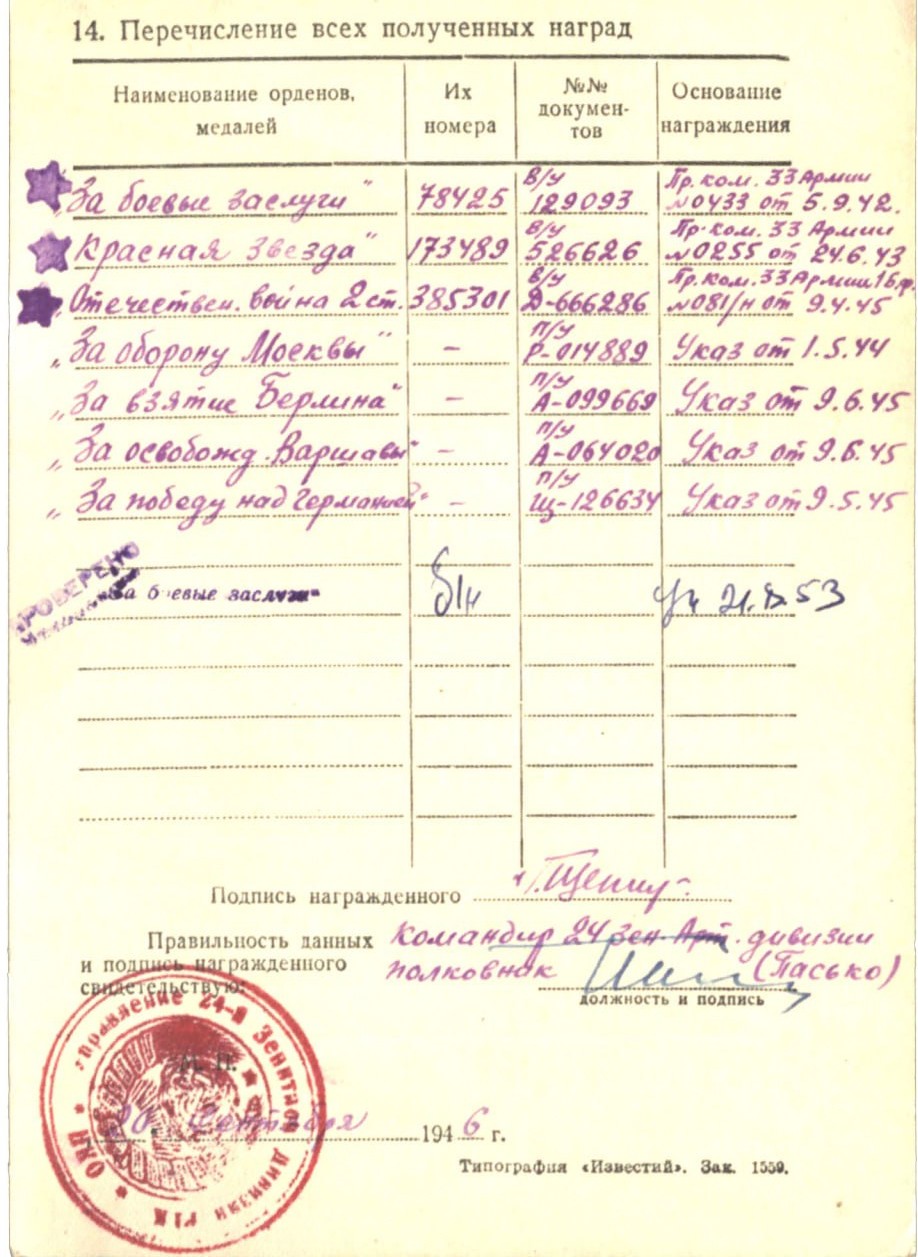 14. Перечисление всех полученных наград
Наименование орденов, медалей
Их номера
№№ докумен-тов
Основание награждения
„За боевые заслуги“ 78425 в/у 129093 Пр. ком. 33 Армии №0433 от 5.9.42.
„Красная Звезда“ 173489 в/у 526626 Пр. ком. 33 Армии №0255 от 24.6.43
„Отечествен. война 2 ст. 385301 в/у Д-666286 Пр. ком. 33 Армии 1б.ф. №081/н от 9.4.45
„За оборону Москвы“ – п/у Р-014889 Указ от 1.5.44
„За взятие Берлина“ – п/у А-099669 Указ от 9.6.45
„За освобожд. Варшавы“ – п/у А-064020 Указ от 9.6.45
„За победу над Германией“ – п/у Щ-126634 Указ от 9.5.45
ПРОВЕРЕНО
„За боевые заслуги“ б/н Ук 53
Подпись награжденного
Правильность данных и подпись награжденного свидетельствую:
командир 24 зен. Арт. дивизии
полковник (Пасько)
должность и подпись
М. П.
Управление 24-й Зенитной дивизии РГК
20 Сентября 1946 г.
Типография «Известий». Зак. 1559.